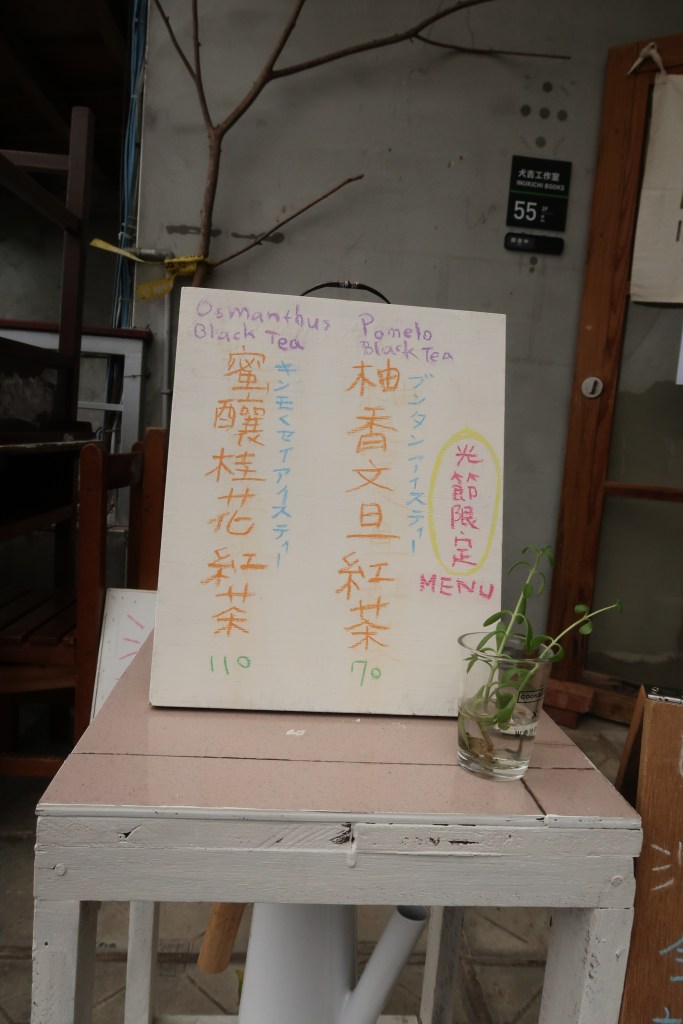 犬吉工作室
INUKICHI BOOKS
55
光節限定
MENU
Pomelo
Black Tea
柚香文旦紅茶
ブンタンアイスティー
70
Osmanthus
Black Tea
蜜釀桂花紅茶
キンモクセイアイスティー
110